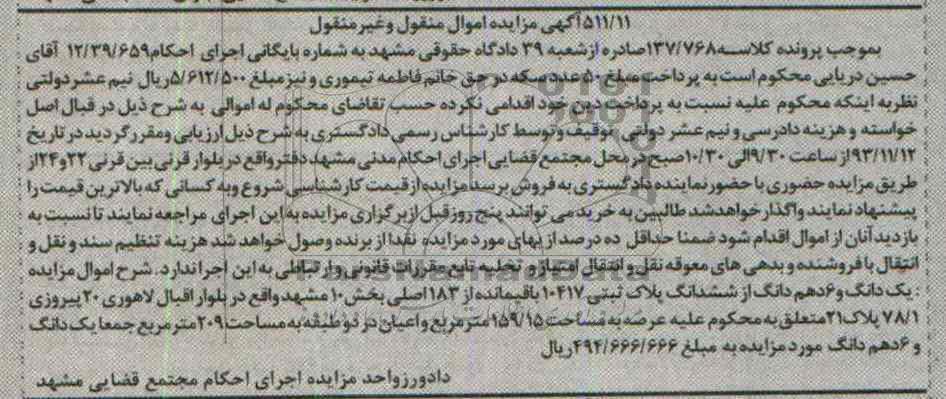 ۵۱۱/۱۱آگهی مزایده اموال منقول وغیرمنقول
بموجب پرونده کلاسه۱۳۷/۷۶۸صادره ازشعبه ۳۹ دادگاه حقوقی مشهد به شماره بایگانی اجرای احکام۱۲/۳۹/۶۵۹ آقای
حسین دریایی محکوم است به پرداخت مبلغ ۵۰عدد سکه در حق خانم فاطمه تیموری و نیز مبلغ ۵/۶۱۲/۵۰۰ریال نیم عشردولتی
نظربه اینکه محکوم علیه نسبت به پرداخت دین خود اقدامی نکرده حسب تقاضای محکوم له اموالی به شرح ذیل در قبال اصل
خواسته و هزینه دادرسی و نیم عشر دولتی توقیف وتوسط کارشناس رسمی دادگستری به شرح ذیل ارزیابی ومقررگردید در تاریخ
۹۳/۱۱/۱۲از ساعت ۹/۳۰الی ۱۰/۳۰صبح در محل مجتمع قضایی اجرای احکام مدنی مشهد دفترواقع در بلوار قرنی بین قرنی ۲۲و۲۴از
طریق مزایده حضوری با حضور نماینده دادگستری به فروش برسد مزایده از قیمت کارشناسی شروع وبه کسانی که بالاترین قیمت را
پیشنهاد نمایند واگذار خواهدشد طالبین به خرید می توانند پنج روزقبل ازبرگزاری مزایده به این اجرای مراجعه نمایند تا نسبت به
بازدید آنان از اموال اقدام شود ضمنا حداقل ده درصد از بهای مورد مزایده نقدا از برنده وصول خواهد شد هزینه تنظیم سند و نقل و
انتقال با فروشنده و بدهی های معوقه نقل و انتقال امتیاز و تخلیه تابع مقررات قانونی و ارتباطی به این اجرا ندارد . شرح اموال مزایده
: یک دانگ و۶دهم دانگ از ششدانگ پلاک ثبتی ۱۰۴۱۷ باقیمانده از ۱۸۳اصلی بخش۱۰ مشهد واقع در بلوار اقبال لاهوری ۲۰پیروزی
۷۸/۱ پلاک۲۱متعلق به محکوم علیه عرصه به مساحت ۱۵۹/۱۵مترمربع و اعیان در دو طبقه به مساحت۲۰۹مترمربع جمعا یک دانگ
و ۶دهم دانگ مورد مزایده به مبلغ ۴۹۴/۶۶۶/۶۶۶ریال
دادورزواحد مزایده اجرای احکام مجتمع قضایی مشهد